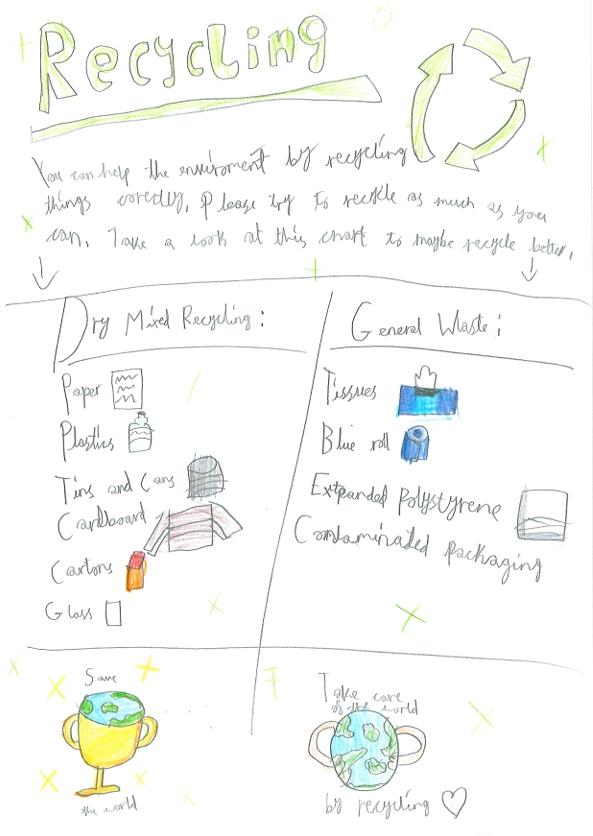 Recycling
You can help the enviroment by recycling
things corectly, Please try to recycle as much as you
can, Take a look at this chart to maybe recycle better,
Dry Mixed Recycling:
Paper
Plastics
Tins and Cans
Cardboard
Cartons
Glass
General Waste:
Tissues
Blue roll
Expanded polystyrene
Contaminated packaging
Save
the world
Take care
of the world
by recycling